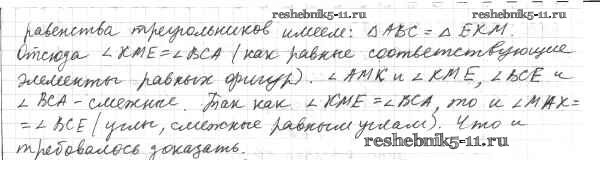 reshebnik5-11.ru
равенства треугольников имеем: △ABC = △EKM.
Отсюда ∠KME = ∠BCA (как равные соответствующие
элементы равных фигур). ∠AMK и ∠KME, ∠BCE и
∠BCA - смежные. Так как ∠KME = ∠BCA, то и ∠MAK =
= ∠BCE (углы, смежные равным углам). Что и
требовалось доказать.
reshebnik5-11.ru